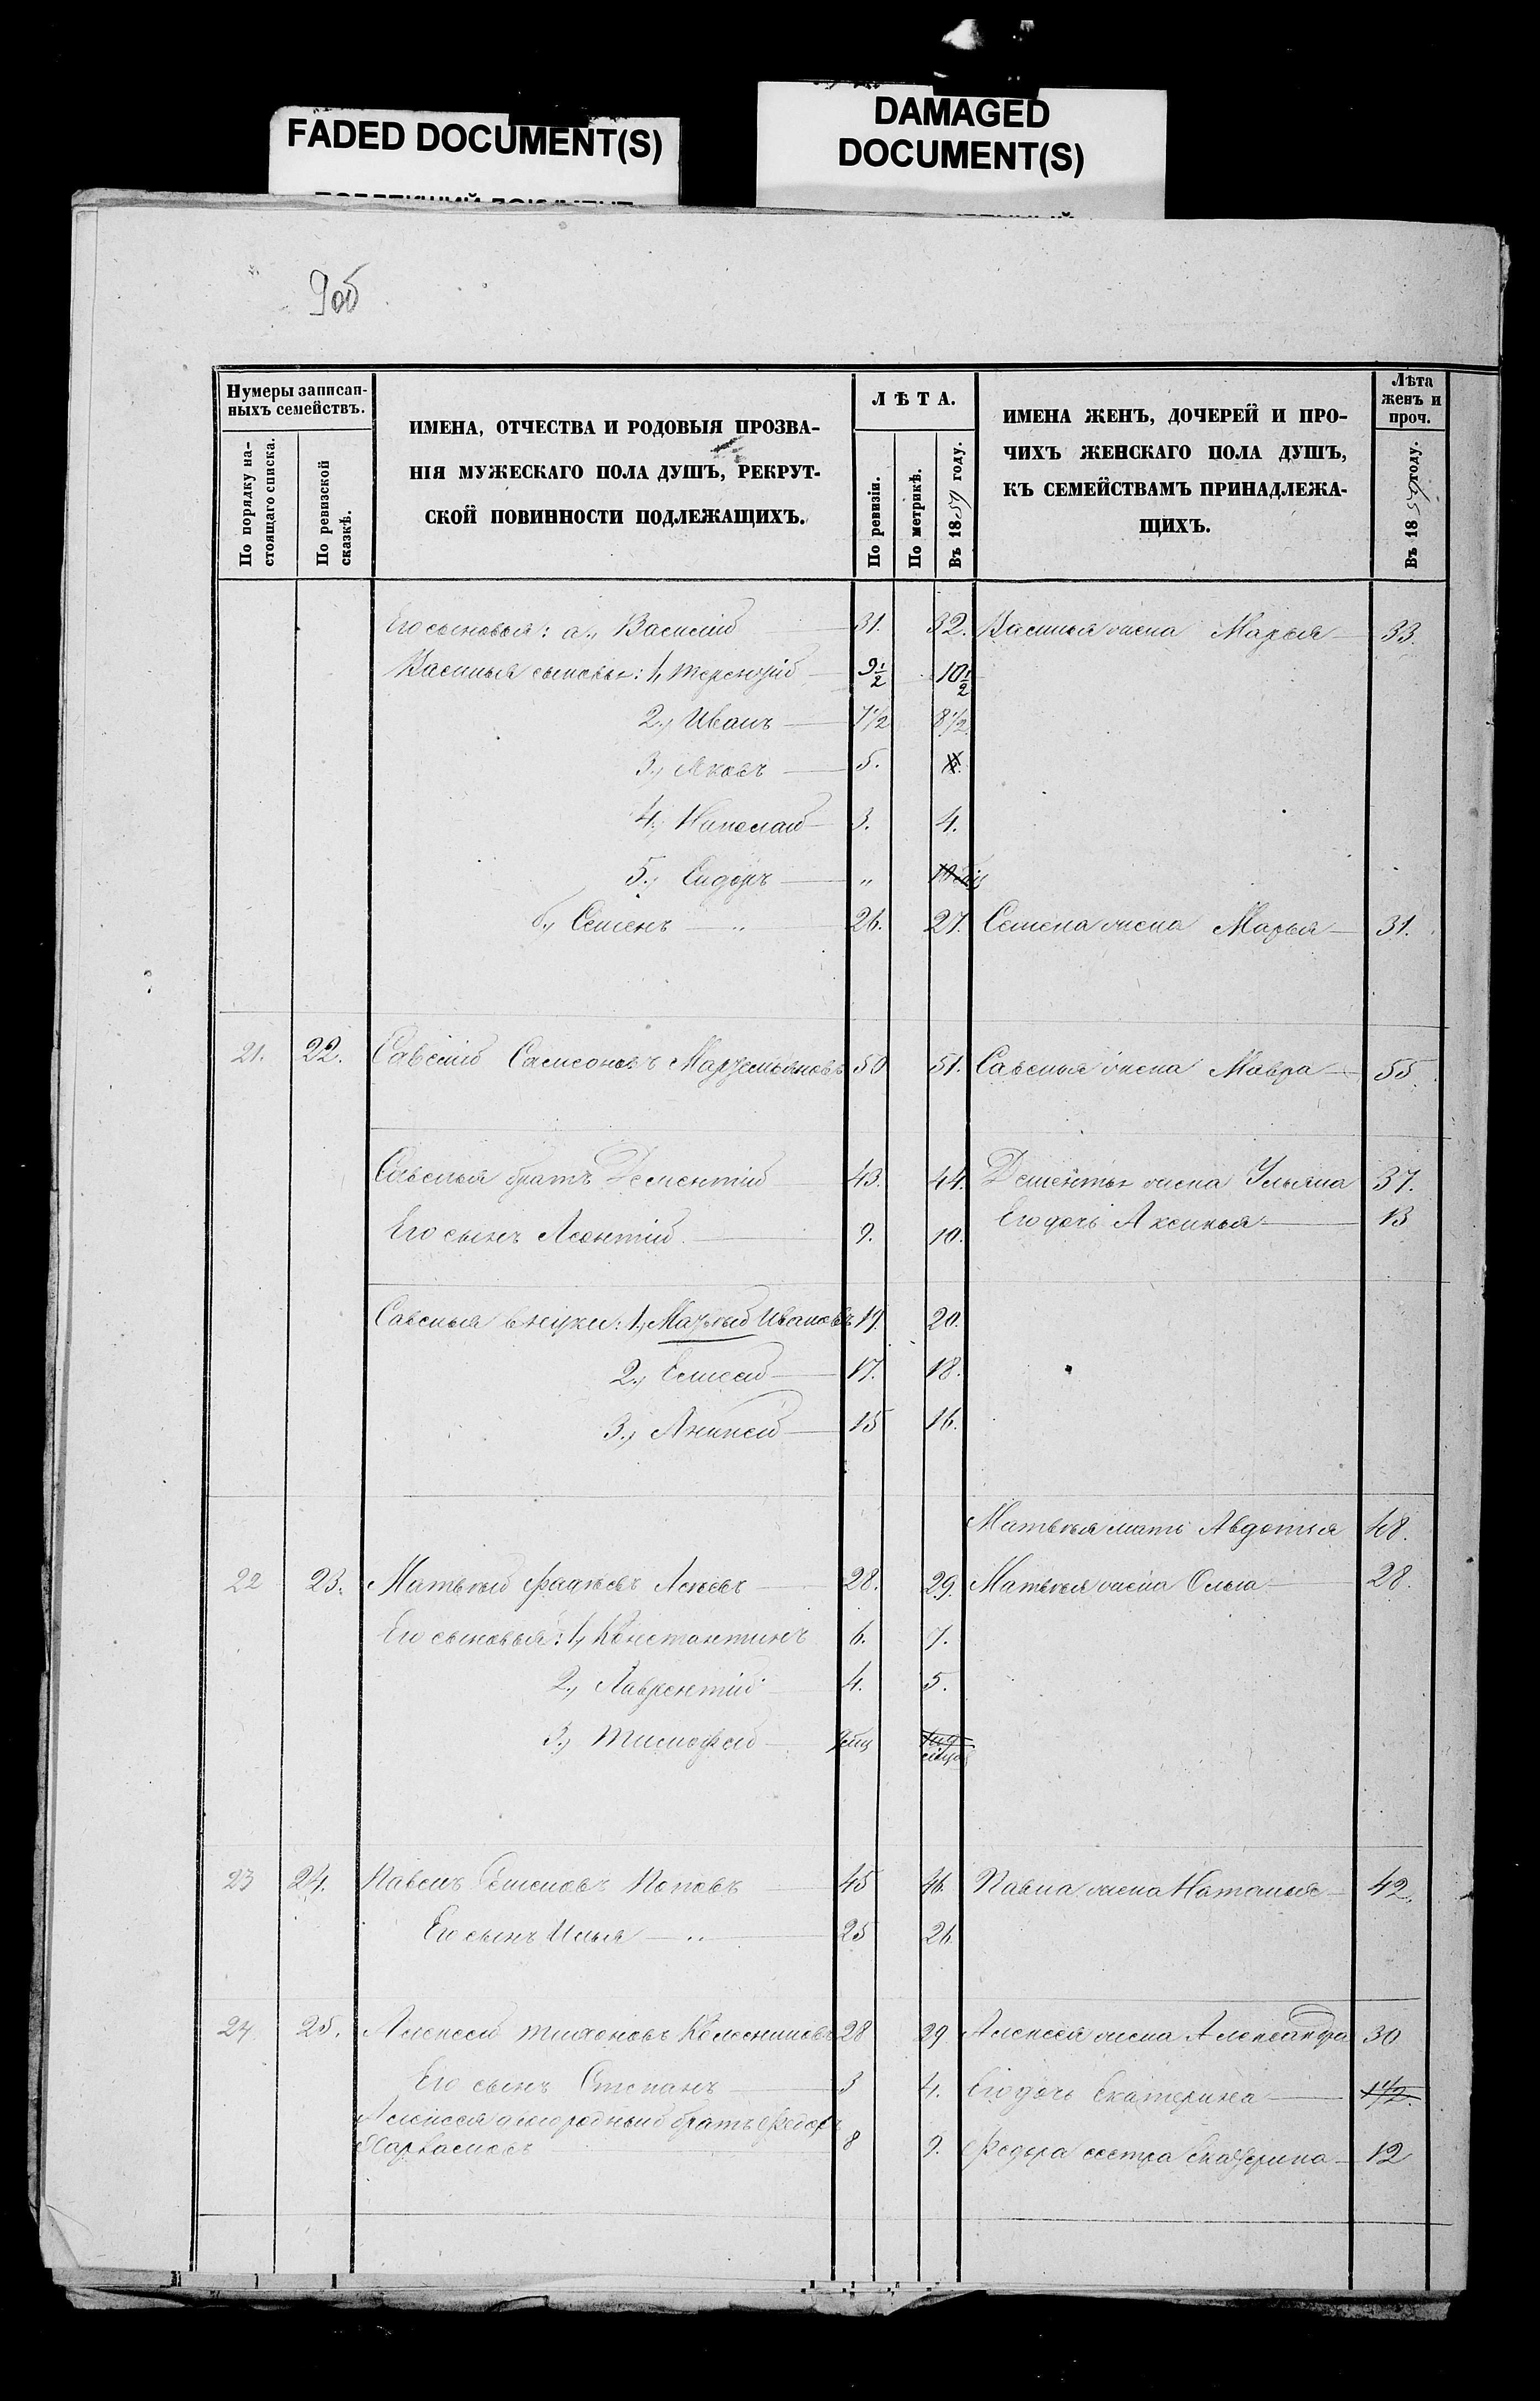 FADED DOCUMENT(S)
DAMAGED
DOCUMENT(S)
9об
Нумеры записан-
ныхъ семействъ.
По порядку на-
стоящаго списка.
По ревизской
сказкѣ.
ИМЕНА, ОТЧЕСТВА И РОДОВЫЯ ПРОЗВА-
НІЯ МУЖЕСКАГО ПОЛА ДУШЪ, РЕКРУТ-
СКОЙ ПОВИННОСТИ ПОДЛЕЖАЩИХЪ.
ЛѢТА.
По ревизіи.
По метрикѣ.
Въ 1859 году.
ИМЕНА ЖЕНЪ, ДОЧЕРЕЙ И ПРО-
ЧИХЪ ЖЕНСКАГО ПОЛА ДУШЪ,
КЪ СЕМЕЙСТВАМЪ ПРИНАДЛЕЖА-
ЩИХЪ.
Лѣта
женъ и
проч.
Въ 1859 году.
Его сыновья: а., Василій 31. 32. Василья жена Марья 33.
Василья сыновья: 1, Терентій 9 1/2 10 1/2
2., Иванъ 7 1/2 8 1/2
3., Яковъ 5.
4., Николай 3. 4.
5., Сидоръ "
б., Семенъ " 26. 27. Семена жена Марья 31.
21. 22. Савелій Самсоновъ Мартемьяновъ 50 51. Савелья жена Мавра 55
Савелья братъ Дементій 43. 44. Дементья жена Ульяна 37.
Его дочь Аксинья 13
Его сынъ Леонтій 9. 10.
Савелья внуки: 1., Матвѣй Ивановъ 19. 20.
2., Елисей 17. 18.
3., Аникей 15 16.
Матвѣя мать Авдотья 48.
22 23. Матвѣй Фадѣевъ 28. 29. Матвѣя жена Ольга 28.
Его сыновья: 1, Константинъ 6. 7.
2., Лаврентій 4. 5.
3., Тимофей
23 24. Павелъ Семеновъ Поповъ 45 46. Павла жена Наталья 42.
Его сынъ Илья " 25 26
24 25. Алексей Тихоновъ Колесниковъ 28 29 Алексея жена Александра 30
Его сынъ Степанъ 3 4. Его дочь Екатерина 1 1/2.
Алексея двоюродный братъ Федоръ
8 9. Федора сестра Екатерина 12